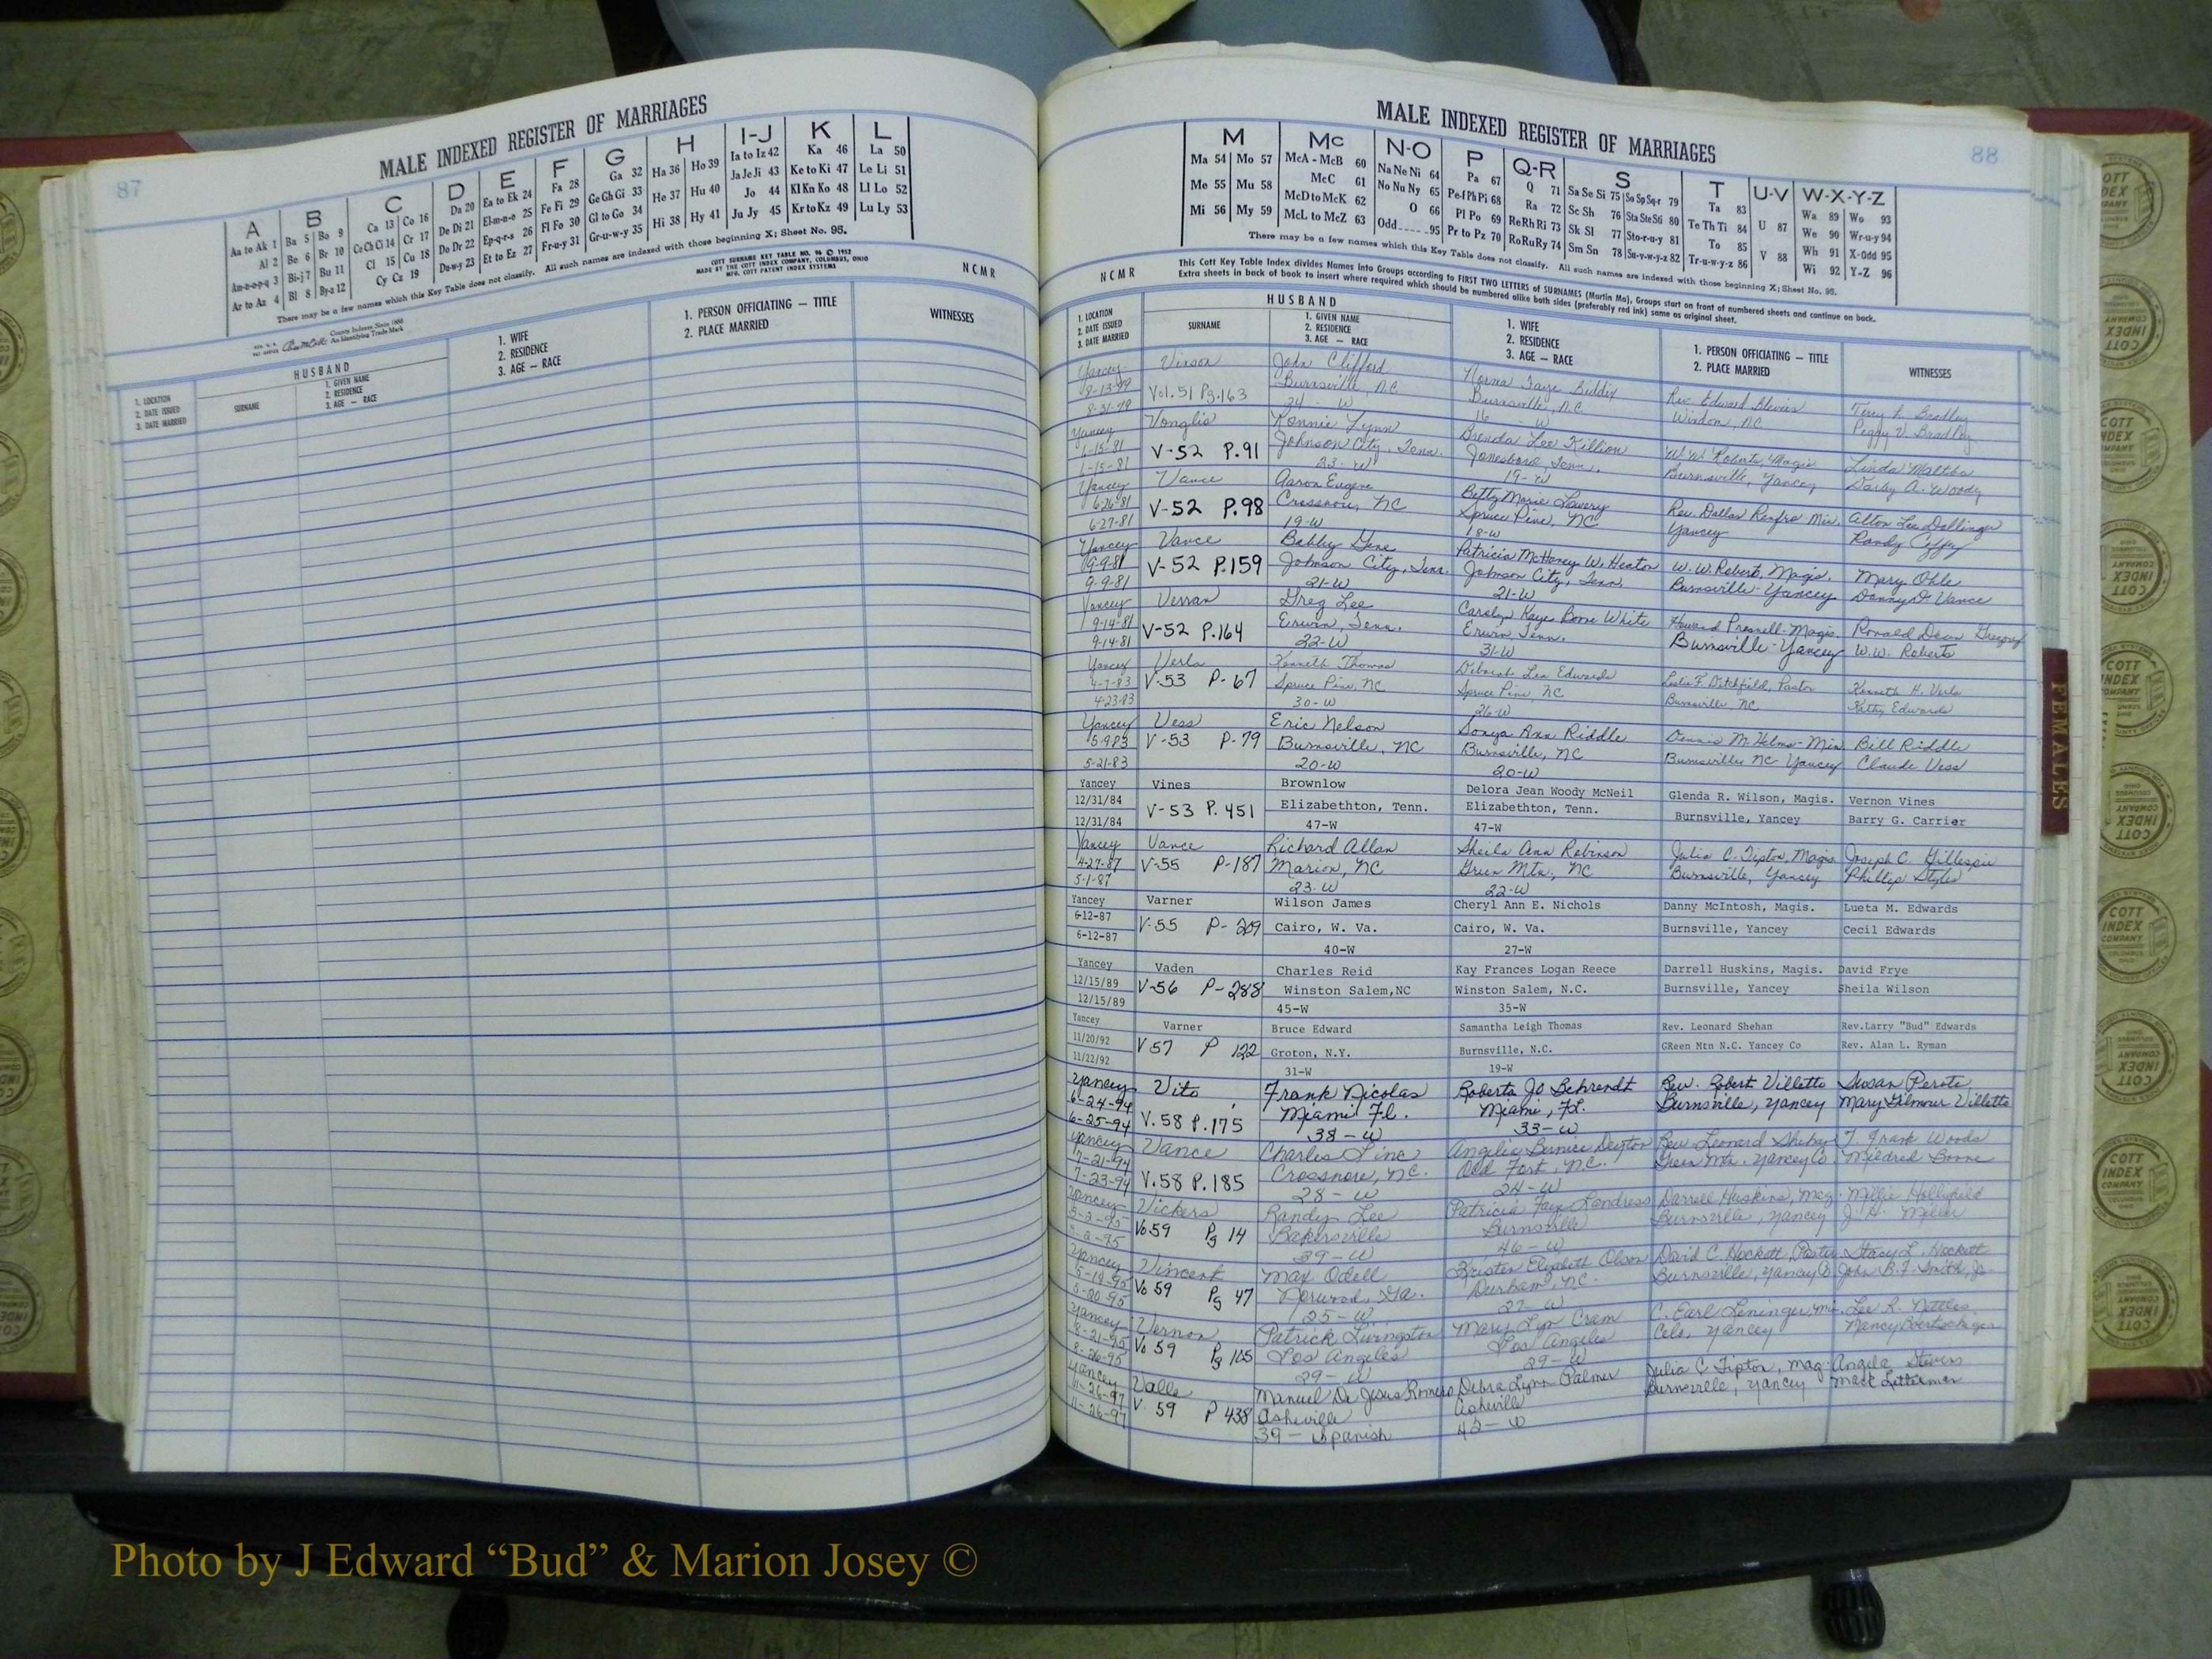 87
MALE INDEXED REGISTER OF MARRIAGES
A B C D E F G H I-J K L
Aa to Ak 1 Ba 5 Bo 9 Ca 13 Co 16 Da 20 Ea to Ek 24 Fa 28 Ga 32 Ha 36 Ho 39 Ia to Iz 42 Ka 46 La 50
Al 2 Be 6 Br 10 Ce Ch Ci 14 Cr 17 De Di 21 El-m-n-o 25 Fe Fi 29 Ge Gh Gi 33 He 37 Hu 40 Ja Je Ji 43 Ke to Ki 47 Le Li 51
Am-n-o-p-q 3 Bi-j 7 Bu 11 Cl 15 Cu 18 Do Dr 22 Ep-q-r-s 26 Fl Fo 30 Gl to Go 34 Hi 38 Hy 41 Jo 44 Kl Kn Ko 48 Ll Lo 52
Ar to Az 4 Bl 8 By-z 12 Cy Cz 19 Du-w-y 23 Et to Ez 27 Fr-u-y 31 Gr-u-w-y 35 Ju Jy 45 Kr to Kz 49 Lu Ly 53
There may be a few names which this Key Table does not classify. All such names are indexed with those beginning X; Sheet No. 95.
COTT SURNAME KEY TABLE NO. 96 © 1952
MADE BY THE COTT INDEX COMPANY, COLUMBUS, OHIO
MFG. COTT PATENT INDEX SYSTEMS
NCMR
County Indexes Since 1888
An Identifying Trade Mark
1. LOCATION
2. DATE ISSUED
3. DATE MARRIED
HUSBAND
SURNAME
1. GIVEN NAME
2. RESIDENCE
3. AGE — RACE
1. WIFE
2. RESIDENCE
3. AGE — RACE
1. PERSON OFFICIATING — TITLE
2. PLACE MARRIED
WITNESSES
MALE INDEXED REGISTER OF MARRIAGES
88
M Mc N-O P Q-R S T U-V W-X-Y-Z
Ma 54 Mo 57 McA - McB 60 Na Ne Ni 64 Pa 67 Q 71 Sa Se Si 75 So Sp Sq-r 79 Ta 83 U 87 Wa 89 Wo 93
Me 55 Mu 58 McC 61 No Nu Ny 65 Pe-f Ph Pi 68 Ra 72 Sc Sh 76 Sta Ste Sti 80 Te Th Ti 84 We 90 Wr-u-y 94
Mi 56 My 59 McD to McK 62 O 66 Pl Po 69 Re Rh Ri 73 Sk Sl 77 Sto-r-u-y 81 To 85 V 88 Wh 91 X-Odd 95
McL to McZ 63 Odd 95 Pr to Pz 70 Ro Ru Ry 74 Sm Sn 78 Su-v-w-y-z 82 Tr-u-w-y-z 86 Wi 92 Y-Z 96
There may be a few names which this Key Table does not classify. All such names are indexed with those beginning X; Sheet No. 95.
NCMR
This Cott Key Table Index divides Names into Groups according to FIRST TWO LETTERS of SURNAMES (Martin Ma), Groups start on front of numbered sheets and continue on back.
Extra sheets in back of book to insert where required which should be numbered alike both sides (preferably red ink) same as original sheet.
1. LOCATION
2. DATE ISSUED
3. DATE MARRIED
HUSBAND
SURNAME
1. GIVEN NAME
2. RESIDENCE
3. AGE — RACE
1. WIFE
2. RESIDENCE
3. AGE — RACE
1. PERSON OFFICIATING — TITLE
2. PLACE MARRIED
WITNESSES
Yancey Vinson John Clifford Norma Faye Biddix Rev. Edward Blevins Terry L. Bradley
8-13-79 Vol. 51 Pg. 163 Burnsville, NC Burnsville, N.C. Windom, NC Peggy V. Bradley
8-31-79 24 - W 16 - W
Yancey Vonglis Ronnie Lynn Brenda Lee Killion W.W. Roberts, Magis Linda Maltba
6-15-81 V-52 P.91 Johnson City, Tenn. Jonesboro, Tenn. Burnsville, Yancey Darby A. Woody
6-15-81 23-W 19-W
Yancey Vance Aaron Eugene Betty Marie Lowery Rev. Dallas Renfro Min. Alton Lee Dellinger
6-26-81 V-52 P.98 Crossnore, NC Spruce Pine, NC Yancey Randy
6-27-81 19-W 18-W
Yancey Vance Bobby Gene Patricia McHoney W. Heaton W.W. Robert, Magis. Mary Ohle
9-9-81 V-52 P.159 Johnson City, Tenn. Johnson City, Tenn. Burnsville-Yancey Danny D. Vance
9-9-81 21-W 21-W
Yancey Verran Greg Lee Carolyn Kaye Boone White Howard Presnell-Magis. Ronald Dean Gregory
9-14-81 V-52 P.164 Erwin, Tenn. Erwin, Tenn. Burnsville-Yancey W.W. Roberts
9-14-81 22-W 31-W
Yancey Verla Kenneth Thomas Deborah Lea Edwards Leslie F. Ditchfield, Pastor Kenneth H. Verla
4-7-83 V-53 P-67 Spruce Pine, NC Spruce Pine, NC Burnsville, NC Kathy Edwards
4-23-83 30-W 26-W
Yancey Vess Eric Nelson Sonya Ann Riddle Dennis M. Helms-Min Bill Riddle
5-9-83 V-53 P-79 Burnsville, NC Burnsville, NC Burnsville NC Yancey Claude Vess
5-21-83 20-W 20-W
Yancey Vines Brownlow Delora Jean Woody McNeil Glenda R. Wilson, Magis. Vernon Vines
12/31/84 V-53 P. 451 Elizabethton, Tenn. Elizabethton, Tenn. Burnsville, Yancey Barry G. Carrier
12/31/84 47-W 47-W
Yancey Vance Richard Allan Sheila Ann Robinson Julia C. Tipton, Magis. Joseph C. Gillespie
4-27-87 V-55 P-187 Marion, NC Green Mtn., NC Burnsville, Yancey Phillip Styles
5-1-87 23-W 22-W
Yancey Varner Wilson James Cheryl Ann E. Nichols Danny McIntosh, Magis. Lueta M. Edwards
6-12-87 V-55 P-209 Cairo, W. Va. Cairo, W. Va. Burnsville, Yancey Cecil Edwards
6-12-87 40-W 27-W
Yancey Vaden Charles Reid Kay Frances Logan Reece Darrell Huskins, Magis. David Frye
12/15/89 V-56 P-288 Winston Salem,NC Winston Salem, N.C. Burnsville, Yancey Sheila Wilson
12/15/89 45-W 35-W
Yancey Varner Bruce Edward Samantha Leigh Thomas Rev. Leonard Shehan Rev.Larry "Bud" Edwards
11/20/92 V 57 P 122 Groton, N.Y. Burnsville, N.C. GReen Mtn N.C. Yancey Co Rev. Alan L. Ryman
11/22/92 31-W 19-W
Yancey Vito Frank Nicolas Roberta Jo Behrendt Rev. Robert Villetto Susan Perote
6-24-94 V.58 P.175 Miami Fl. Miami, Fl. Burnsville, Yancey Mary Gilmour Villetto
6-25-94 38-W 33-W
Yancey Vance Charles Linc Angelia Bernice Deyton Rev Leonard T. Frank Woods
7-21-94 V.58 P.185 Crossnore, N.C. Old Fort, N.C. Green Mtn. Yancey Co Mildred Boone
7-23-94 28-W 24-W
Yancey Vickers Randy Lee Patricia Faye Landress Darrell Huskins, Mag. Millie Hollifield
3-2-95 Vo 59 Pg 14 Bakersville Burnsville Burnsville, Yancey J. H. Miller
39-W 46-W
Yancey Vincent Max Odell Kristen Elizabeth Olson David C. Hockett, Pastor Stacy L. Hockett
5-19-95 Vo 59 Pg 47 Norwood, Ga. Durham, NC. Burnsville, Yancey Co John R.F. Smith, Jr.
5-20-95 25-W 27-W
Yancey Vernon Patrick Livingston Mary Lyn Cram C. Earl Leininger, Min. Lee R. Nettles
8-21-95 Vo 59 Pg 105 Los Angeles Los Angeles Celo, Yancey Nancy
8-26-95 29-W 29-W
Yancey Valle Manuel De Jesus Romero Debra Lynn Palmer Julia C Tipton, Mag. Angela Stevens
11-26-97 V 59 P 438 Asheville Asheville Burnsville, Yancey Mark Letterman
11-26-97 39-Spanish 42-W
FEMALES
COTT
INDEX
COMPANY
Photo by J Edward “Bud” & Marion Josey ©